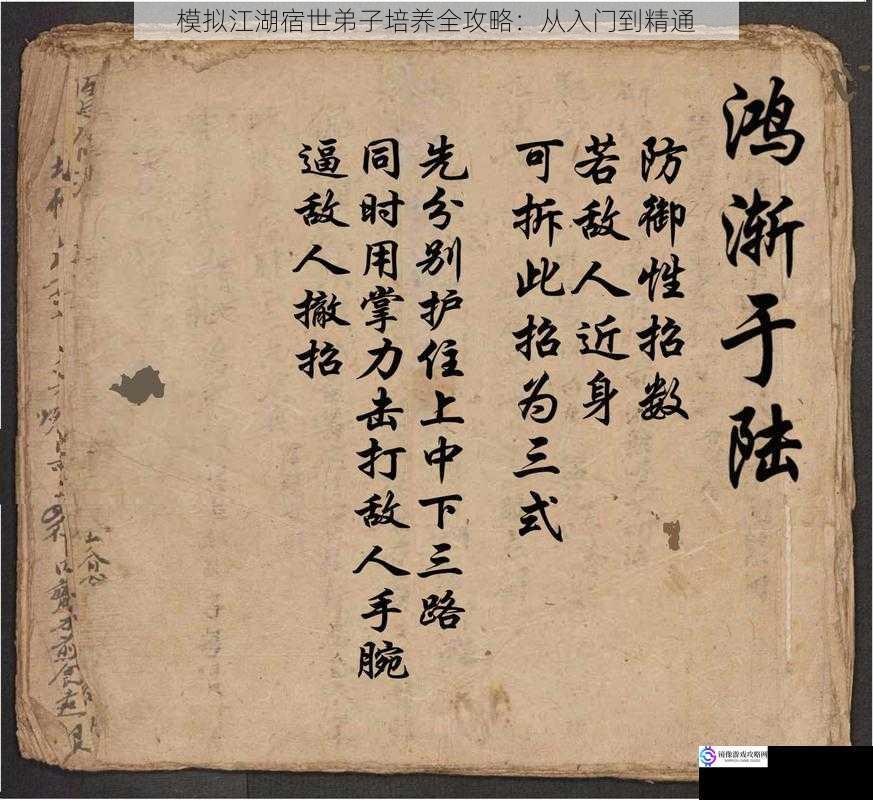 模拟江湖宿世弟子培养全攻略：从入门到精通
鸿渐于陆
防御性招数
若敌人近身
可拆此招为三式
先分别护住上中下三路
同时用掌力击打敌人手腕
逼敌人撤招
镜像游戏攻略网